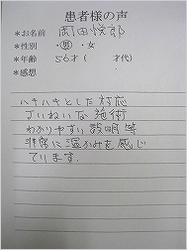 患者様の声
*お名前 岡田悦郎
*性別 ・男・女
*年齢 56才( 才代)
*感想
ハキハキとした対応
ていねいな施術
わかりやすい説明等
非常に温かみを感じ
ています。